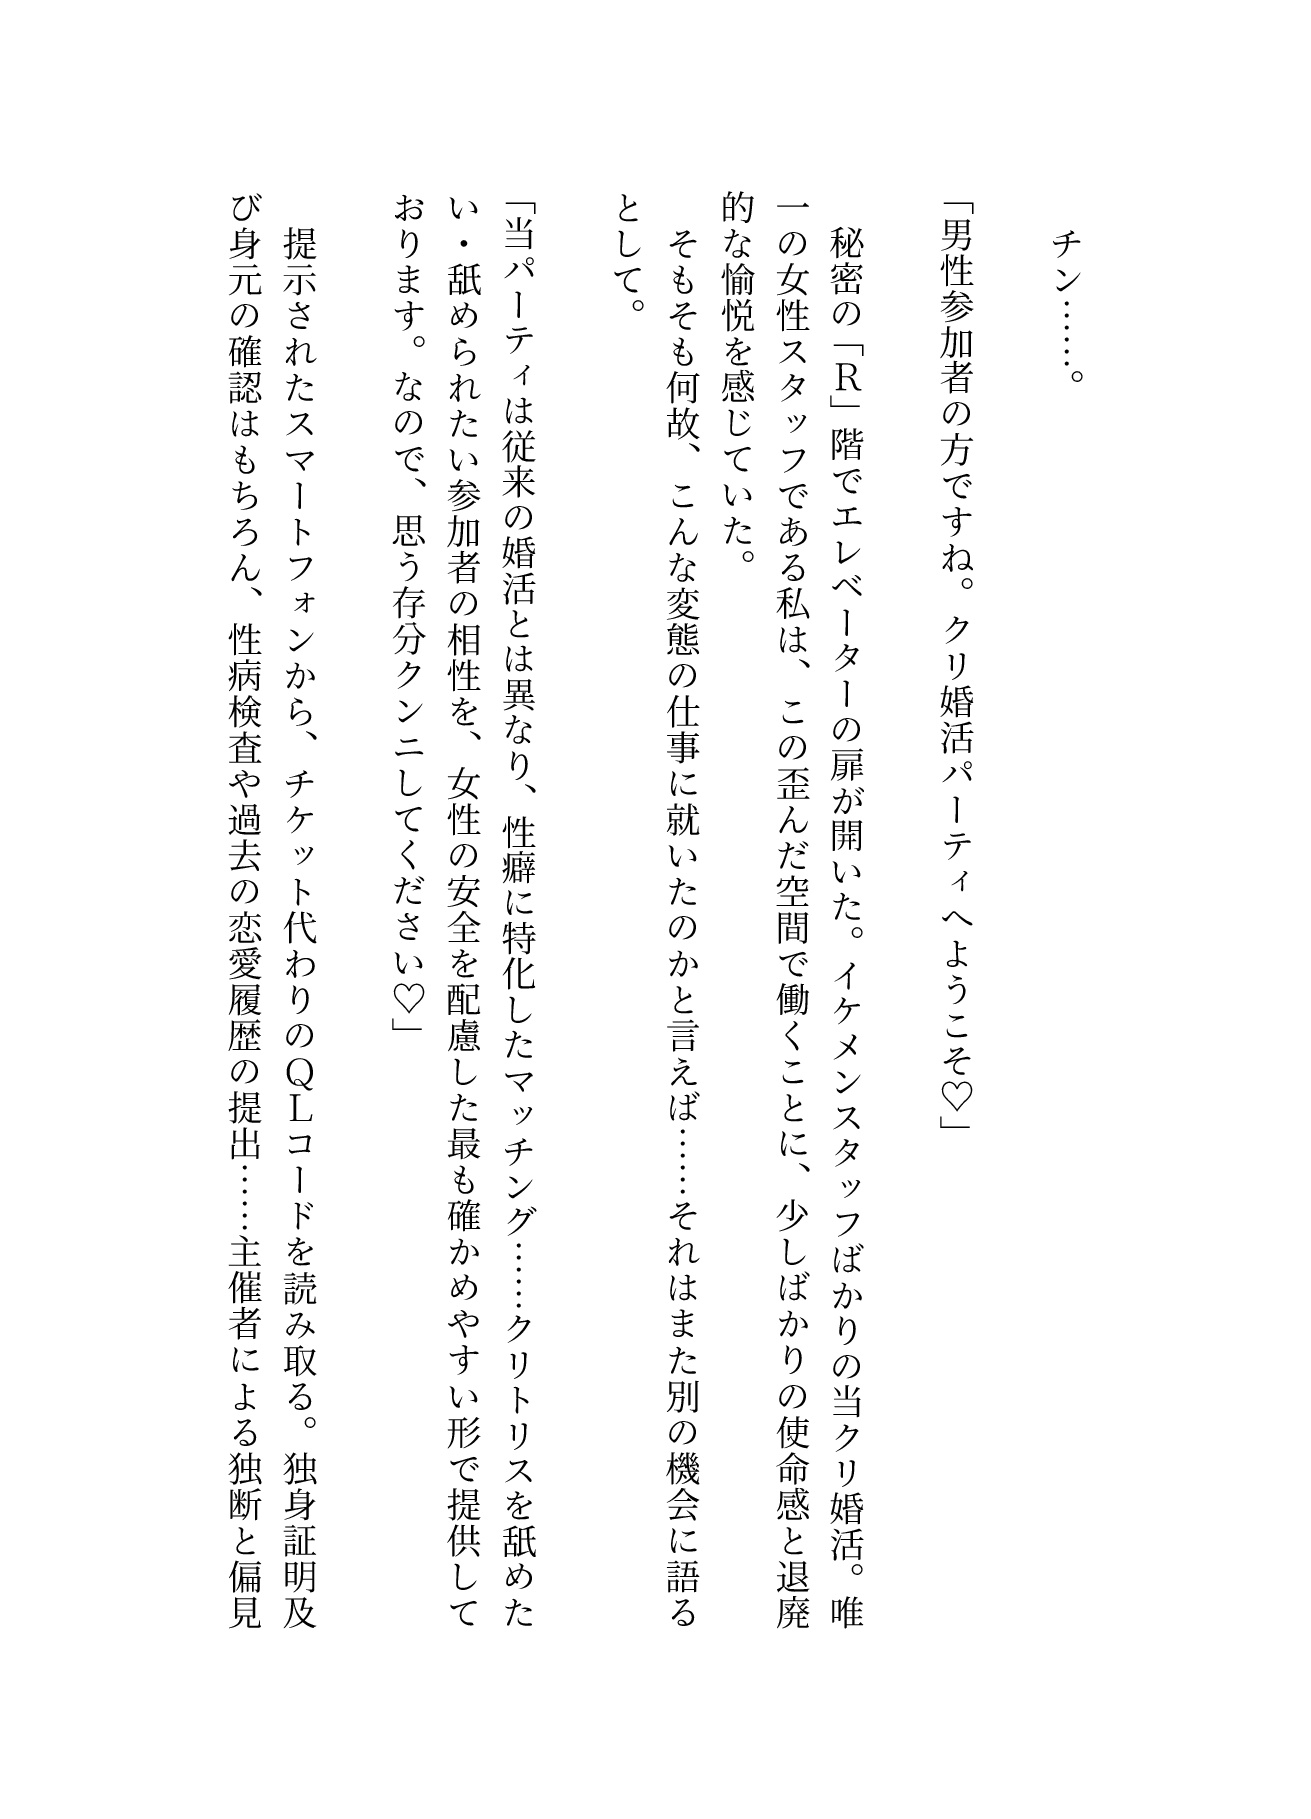 チン……。
「男性参加者の方ですね。クリ婚活パーティへようこそ♡」
秘密の「Ｒ」階でエレベーターの扉が開いた。イケメンスタッフばかりの当クリ婚活。唯
一の女性スタッフである私は、この歪んだ空間で働くことに、少しばかりの使命感と退廃
的な愉悦を感じていた。
そもそも何故、こんな変態の仕事に就いたのかと言えば……それはまた別の機会に語る
として。
「当パーティは従来の婚活とは異なり、性癖に特化したマッチング……クリトリスを舐めた
い・舐められたい参加者の相性を、女性の安全を配慮した最も確かめやすい形で提供して
おります。なので、思う存分クンニしてください♡」
提示されたスマートフォンから、チケット代わりのＱＬコードを読み取る。独身証明及
び身元の確認はもちろん、性病検査や過去の恋愛履歴の提出……主催者による独断と偏見